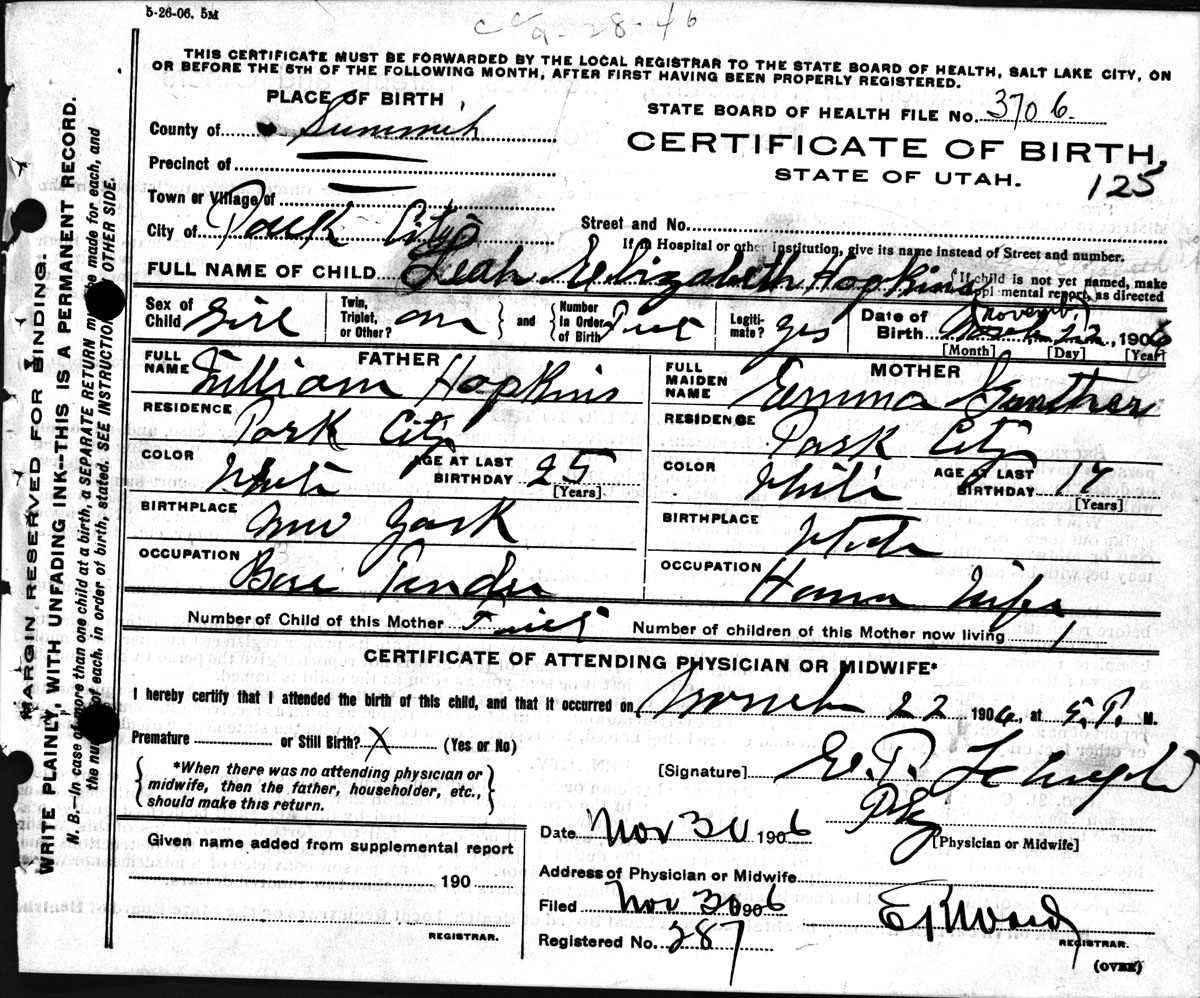 5-26-06. 5M
9-28-46
THIS CERTIFICATE MUST BE FORWARDED BY THE LOCAL REGISTRAR TO THE STATE BOARD OF HEALTH, SALT LAKE CITY, ON
OR BEFORE THE 5TH OF THE FOLLOWING MONTH, AFTER FIRST HAVING BEEN PROPERLY REGISTERED.
PLACE OF BIRTH
STATE BOARD OF HEALTH FILE No. 3706.
County of Summit
CERTIFICATE OF BIRTH,
Precinct of
STATE OF UTAH.
125
Town or Village of
City of Park City
Street and No.
If in Hospital or other Institution, give its name instead of Street and number.
FULL NAME OF CHILD Leah Elizabeth Hopkins
If child is not yet named, make supplemental report, as directed
Sex of Child Girl
Twin, Triplet, or Other? one
and
Number In Order of Birth First
Legiti-mate? yes
Date of Birth November 22, 1906
[Month] [Day] [Year]
FATHER
MOTHER
FULL NAME William Hopkins
FULL MAIDEN NAME Emma Gunther
RESIDENCE Park City
RESIDENCE Park City
COLOR White AGE AT LAST BIRTHDAY 25 [Years]
COLOR White AGE AT LAST BIRTHDAY [Years]
BIRTHPLACE New York
BIRTHPLACE Utah
OCCUPATION Bar Tender
OCCUPATION House Wife
Number of Child of this Mother First
Number of children of this Mother now living 1
CERTIFICATE OF ATTENDING PHYSICIAN OR MIDWIFE*
I hereby certify that I attended the birth of this child, and that it occurred on 22 1906, at P. M.
Premature or Still Birth? X (Yes or No)
*When there was no attending physician or midwife, then the father, householder, etc., should make this return.
[Signature] E. P.
[Physician or Midwife]
Date Nov 30 1906
Given name added from supplemental report
Address of Physician or Midwife
190
Filed Nov 30 1906
E R Ward
REGISTRAR.
REGISTRAR.
Registered No. 287
(OVER)
MARGIN RESERVED FOR BINDING.
WRITE PLAINLY, WITH UNFADING INK—THIS IS A PERMANENT RECORD.
N. B.—In case of more than one child at a birth, a SEPARATE RETURN must be made for each, and
the number of each, in order of birth, stated. SEE INSTRUCTIONS OTHER SIDE.